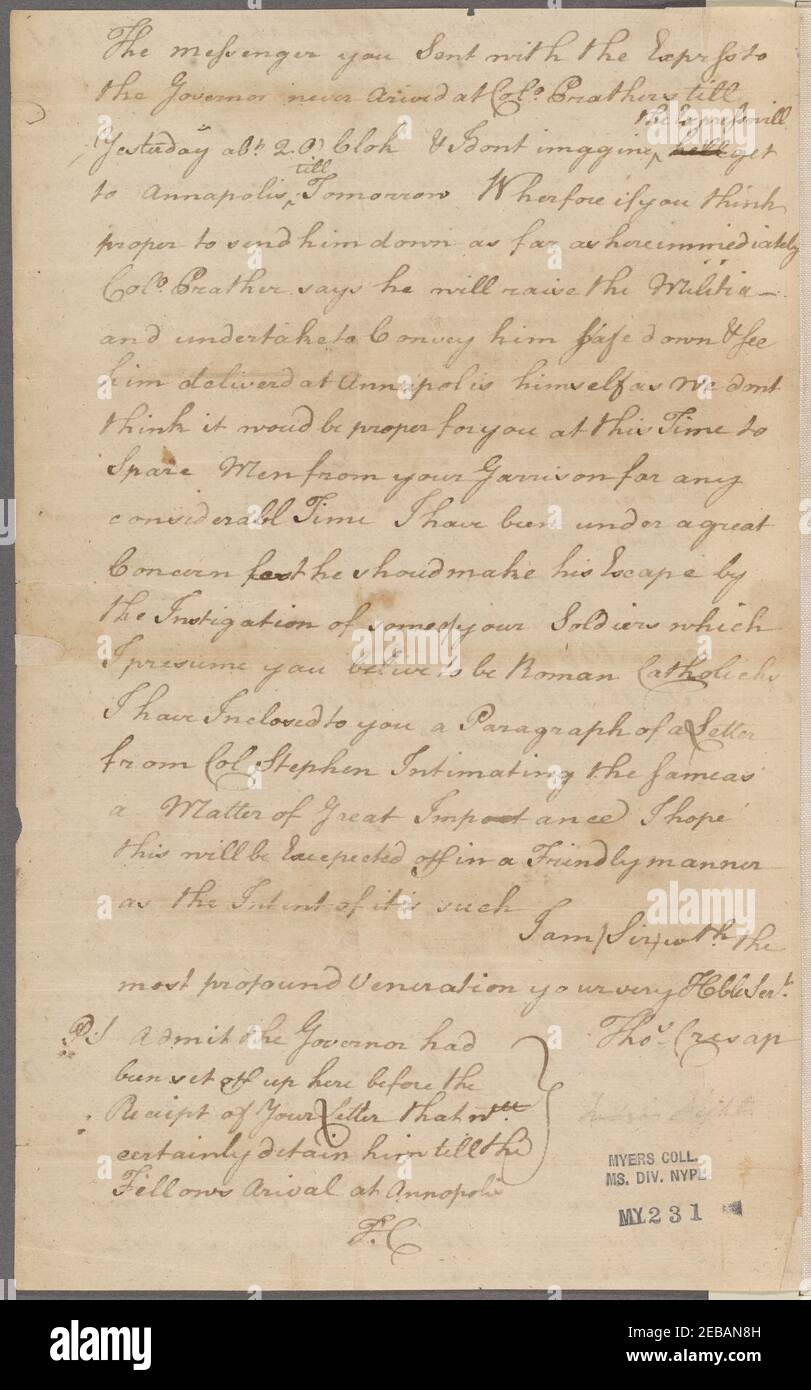 The messenger you Sent with the Express to
the Governor never Arived at Colo. Prathers till
the Express will
Yesterday abt. 2 O Clok & I dont imagine ^ get
till
to Annapolis ^ Tomorrow Wherfore if you think
proper to send him down as far as here immediately
Colo. Prather says he will raise the Militia –
and undertake to Convey him Safe down & See
him deliverd at Annapolis himself as we dont
think it woud be proper for you at this Time to
Spare Men from your Garrison for any
considerabl Time I have been under a great
Concern lest he shoud make his Escape by
the Instigation of some of your Soldiers which
I presume you belive to be Roman Catholicks
I have Inclosed to you a Paragraph of a Letter
from Col Stephen Intimating the same as
a Matter of Great Importance I hope
this will be Excepected off in a Friendly manner
as the Intent of it is such
I am (Sir) wth. the
most profound Veneration your very Hble Sert.
Thos. Cresap
P.S Admit the Governor had
been set off up here before the
Receipt of Your Letter that
certainly detain him till the
Fellows Arival at Annopolis
T. C
MYERS COLL.
MS. DIV. NYPL
MY. 231
alamy
alamy
alamy
alamy
alamy
alamy
Image ID: 2EBAN8H
www.alamy.com